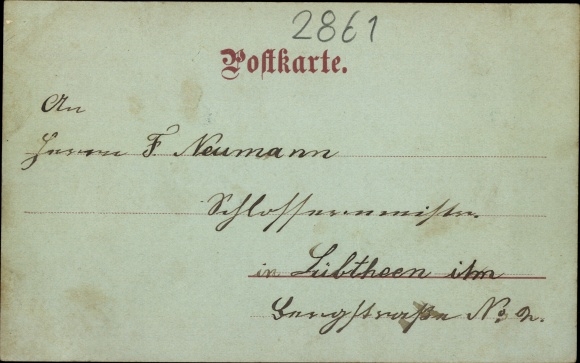 2861
Postkarte.
An
Herrn F. Neumann
Schlossermeistr.
in Lübtheen i/m
Bergstraße No 2.